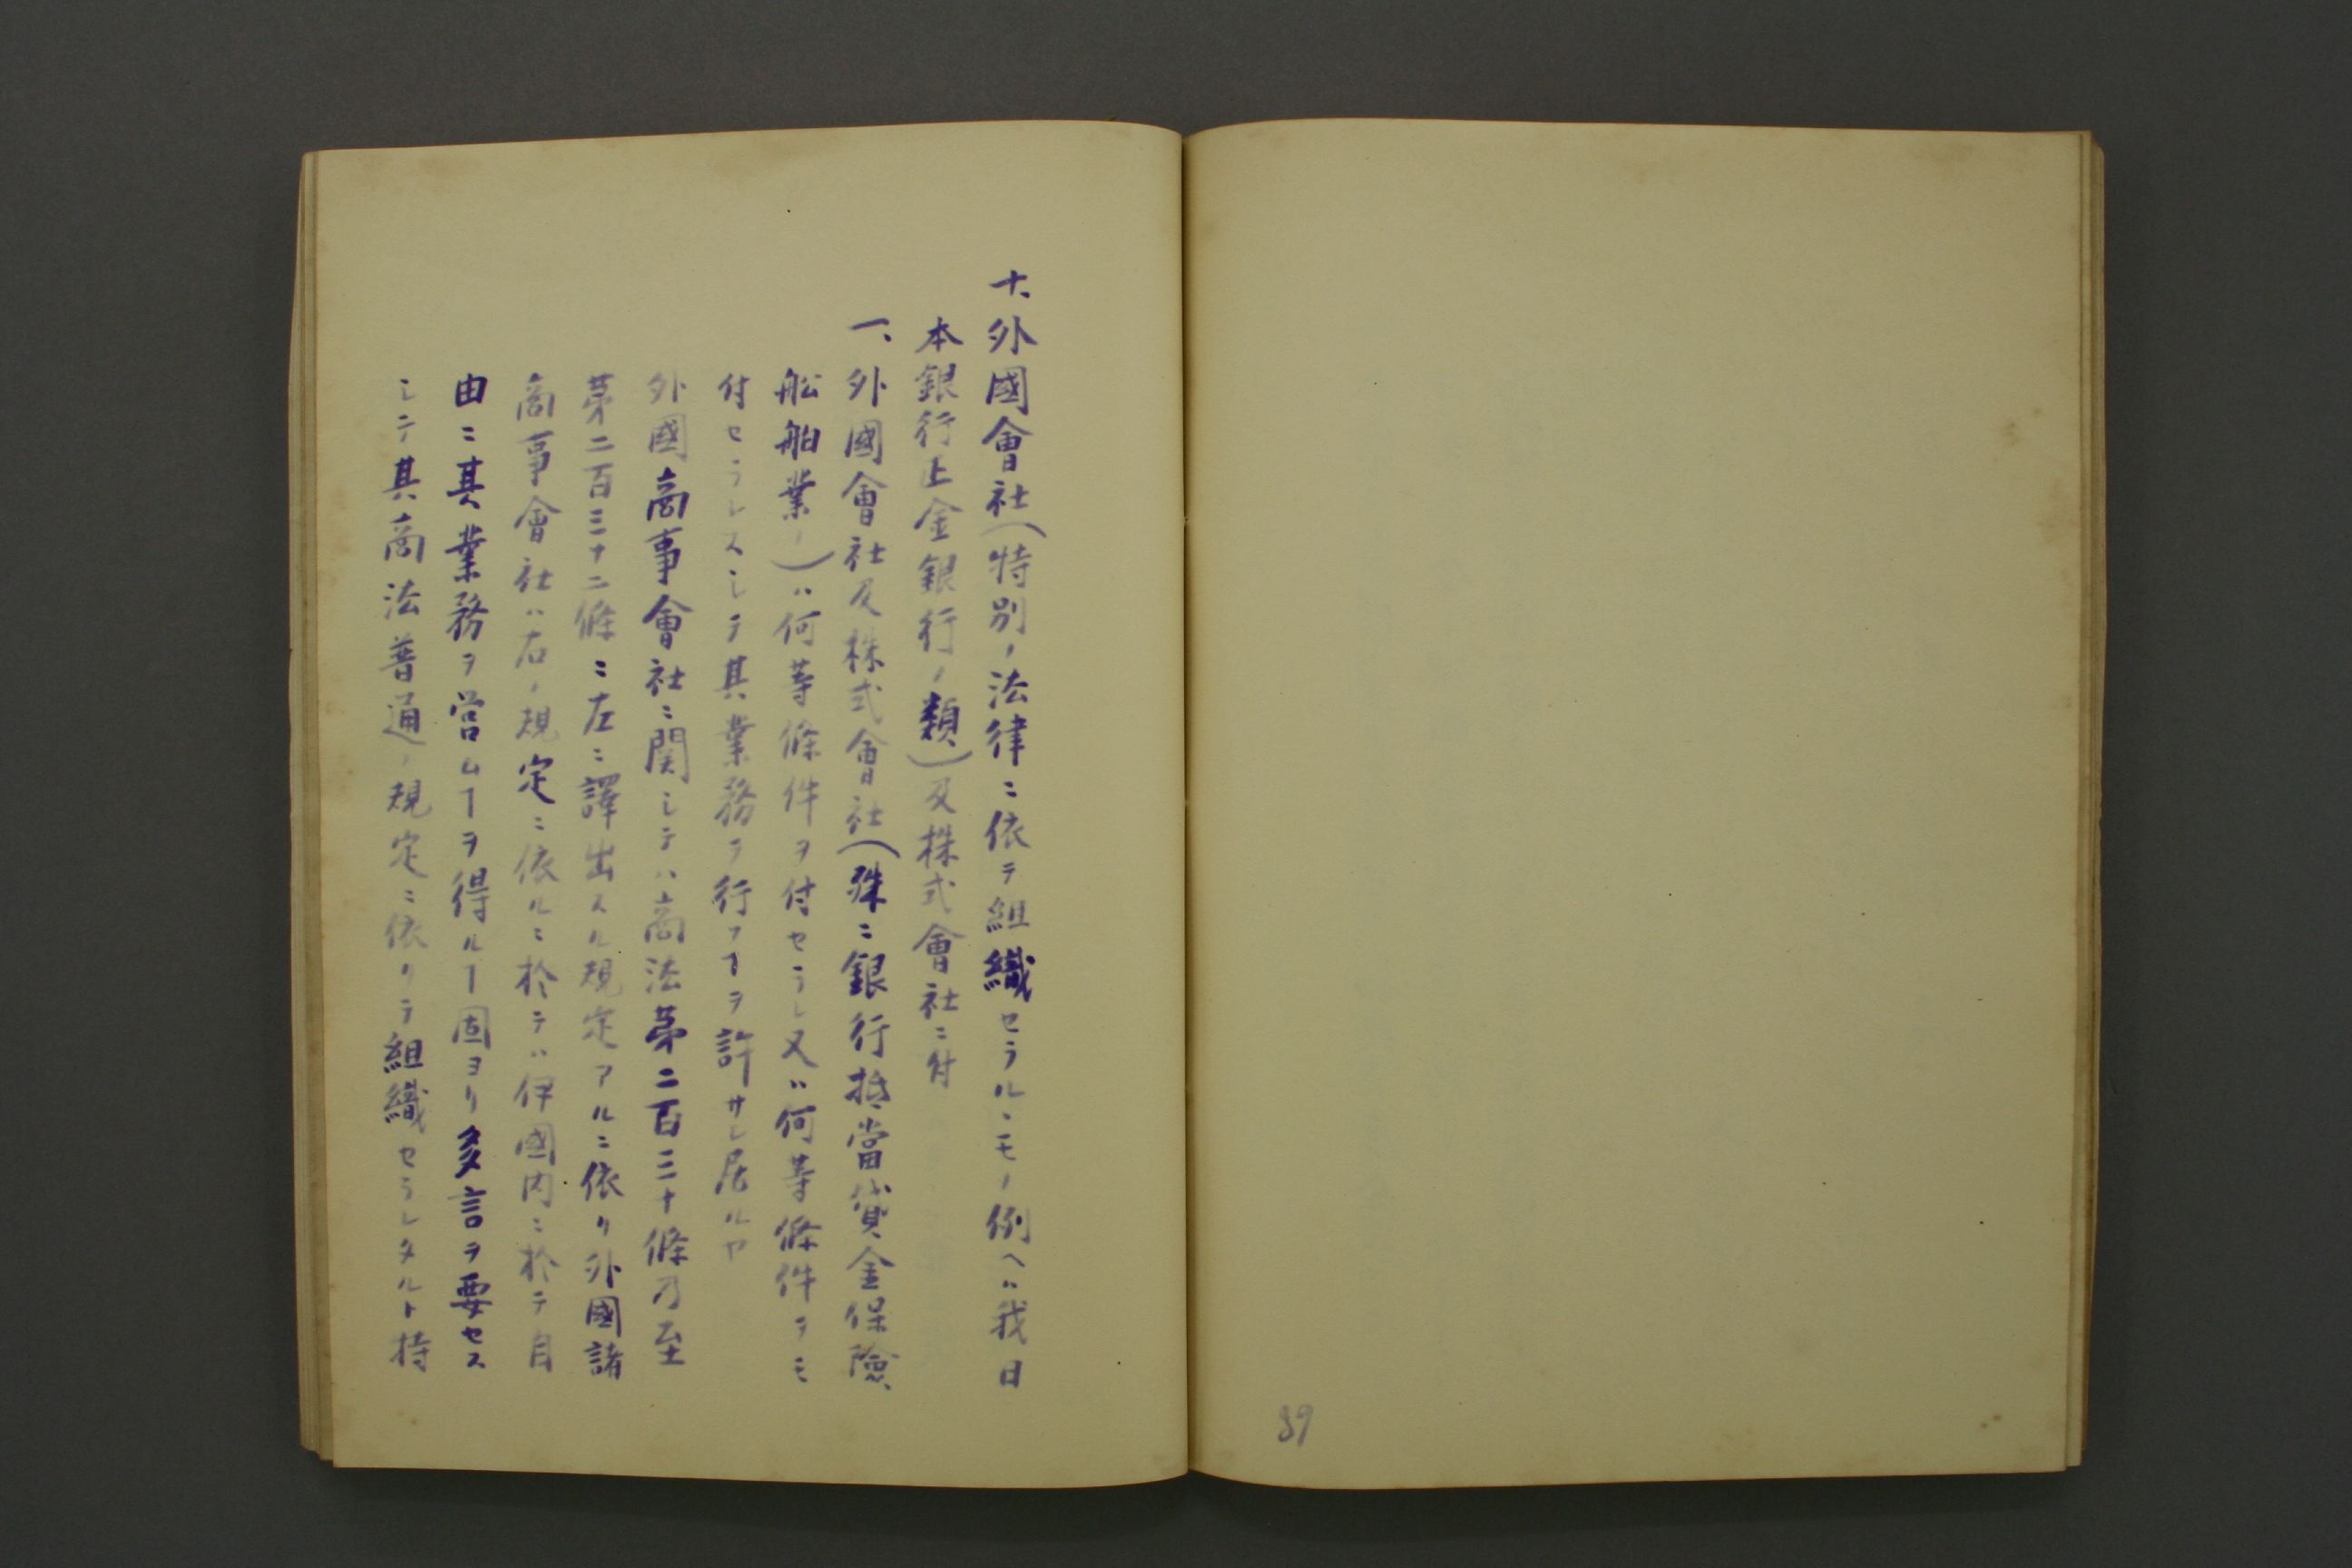 十、外國會社(特別ノ法律ニ依テ組織セラルヽモノ例ヘハ我日
本銀行正金銀行ノ類)及株式會社ニ付
一、外國會社及株式會社(殊ニ銀行抵當貸金保險、
船舶業ノ)ハ何等條件ヲ付セラレ又ハ何等條件ヲモ
付セラレスシテ其業務ヲ行フヿヲ許サレ居ルヤ
外國商事會社ニ関シテハ商法第二百三十條乃至
第二百三十二條ニ左ニ譯出スル規定アルニ依リ外國諸
商事會社ハ右ノ規定ニ依ルニ於テハ伊國内ニ於テ自
由ニ其業務ヲ営ムヿヲ得ルヿ固ヨリ多言ヲ要セス
シテ其商法普通ノ規定ニ依リテ組織セラレタルト特
89